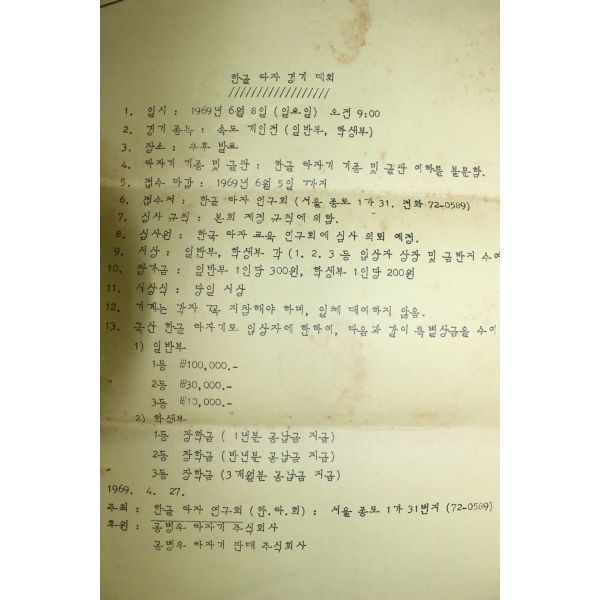 한글 타자 경기 대회
//////////////////
1. 일시 : 1969년 6월 8일 (일요일) 오전 9:00
2. 경기 종목 : 속도 개인전 (일반부, 학생부)
3. 장소 : 추후 발표
4. 타자기 기종 및 글판 : 한글 타자기 기종 및 글판 여하를 불문함.
5. 접수 마감 : 1969년 6월 5일 까지
6. 접수처 : 한글 타자 연구회 (서울 종로 1가 31. 전화 72-0589)
7. 심사 규칙 : 본회 제정 규칙에 의함.
8. 심사원 : 한국 타자 교육 연구회에 심사 의뢰 예정.
9. 시상 : 일반부, 학생부 각 (1. 2. 3 등 입상자 상장 및 금반지 수여
10. 참가금 : 일반부 1인당 300원, 학생부 1인당 200원
11. 시상식 : 당일 시상
12. 기계는 각자 꼭 지참해야 하며, 일체 대여하지 않음.
13. 국산 한글 타자기로 입상자에 한하여, 다음과 같이 특별상금을 수여
1) 일반부
1등 ₩100,000.-
2등 ₩30,000.-
3등 ₩10,000.-
2) 학생부
1등 장학금 ( 1년분 공납금 지급)
2등 장학금 (반년분 공납금 지급)
3등 장학금 (3개월분 공납금 지급)
1969. 4. 27.
주최 : 한글 타자 연구회 (한.타.회) : 서울 종로 1가 31번지 (72-0589)
후원 : 공병우 타자기 주식회사
공병우 타자기 판매 주식회사